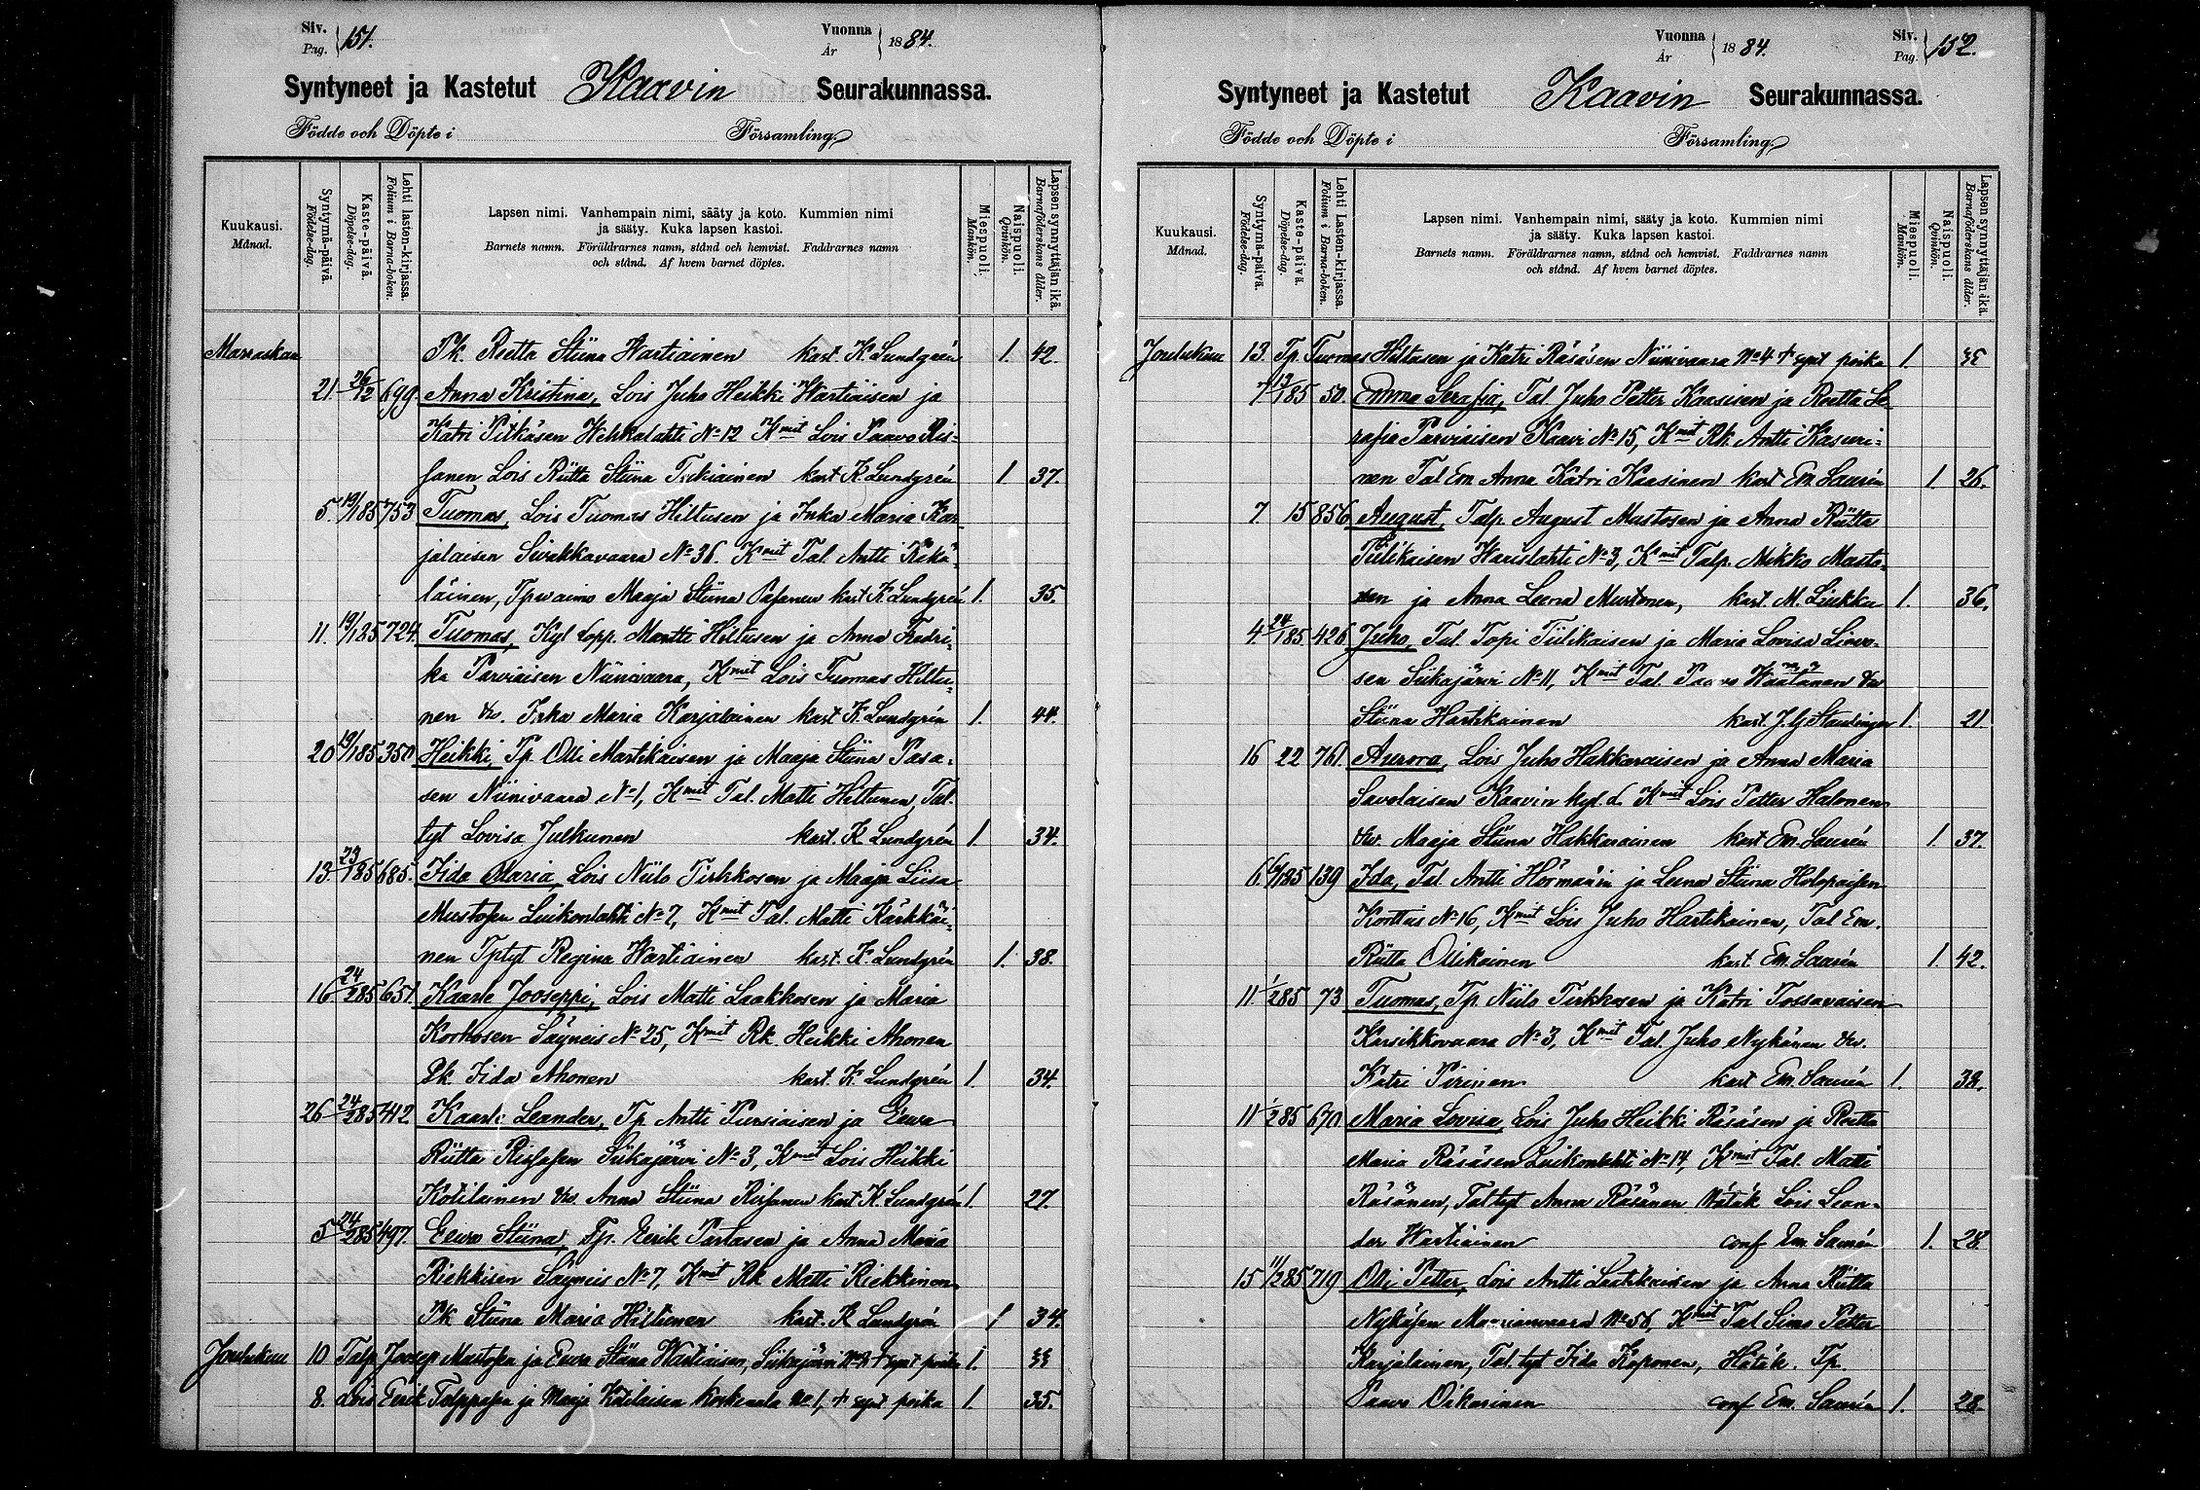 Siv. Pag. 151.
Vuonna År 1884.
Syntyneet ja Kastetut Kaavin Seurakunnassa.
Födde och Döpte i Församling
Kuukausi. Månad.
Syntymä-päivä. Födelse-dag.
Kaste-päivä. Döpelse-dag.
Lehti lasten-kirjassa. Folium i Barna-boken.
Lapsen nimi. Vanhempain nimi, sääty ja koto. Kummien nimi
ja sääty. Kuka lapsen kastoi.
Barnets namn. Föräldrarnes namn, stånd och hemvist. Faddrarnes namn
och stånd. Af hvem barnet döptes.
Miespuoli. Mankön.
Naispuoli. Qvinkön.
Lapsen synnyttäjän ikä. Barnaföderskans ålder.
Marraskuu Pk. Reetta Stiina Wartiainen kast. K Lundgrén 1. 42.
21. 26/12 699. Anna Kristina, Lois Juho Heikki Wartiaisen ja
Katri Pitkäsen Wehkalahti No 12 Kmit Lois Paavo Ris-
sanen Lois Riitta Stiina Tirkiainen kast K. Lundgrén 1 37.
5. 19/1 85 753 Tuomas, Lois Tuomas Hiltusen ja Inka Maria Kar-
jalaisen Sivakkavaara No 36. Kmit Tal. Antti Kikä-
läinen, Tpvaimo Maaja Stiina Pasanen kast K. Lundgrén 1. 35.
11. 19/1 85 724. Tuomas, Kyl. lopp. Martti Hiltusen ja Anna Fredri-
ka Parviaisen Niinivaara, Kmit Lois Tuomas Hiltu-
nen vw. Inka Maria Karjalainen kast K. Lundgrén 1. 44.
20 19/1 85 350 Heikki, Tp. Olli Martikaisen ja Maaja Stiina Pasa-
sen Niinivaara No 1, Kmit Tal. Matti Hiltunen, Tal.
tyt Lovisa Julkunen kast. K Lundgrén 1. 34.
13. 23/1 85 685. Iida Maria, Lois Niilo Tirkkosen ja Maaja Liisa
Mustosen Luikonlahti No 7, Kmit Tal. Matti Kärkkäi-
nen Tptyt Regina Wartiainen kast. K. Lundgrén 1. 38.
16 24/2 85 651. Kaarle Jooseppi, Lois Matti Laakkosen ja Maria
Korhosen Säyneis No 25, Kmit Rk. Heikki Ahonen
Pk. Iida Ahonen kast. K Lundgrén 1. 34.
26 24/2 85 412 Kaarle Leander, Tp Antti Pursiaisen ja Eewa
Riitta Rissasen Siikajärvi No 3, Kmit Lois Heikki
Kotilainen vw. Anna Stiina Rissanen kast. K. Lundgrén 1. 27.
5 24/2 85 497. Eewa Stiina, Tp. Eerik Partasen ja Anna Maria
Riekkisen Säyneis No 7, Kmit Rk Matti Riekkinen
Pk Stiina Maria Hiltunen kast. K Lundgrén 1 34.
Joulukuu 10 Talp. Joosep Mustosen ja Eewa Stiina Wartiaisen, Siikajärvi No 2 + synt poika 1. 33
8. Lois Eerik Tolppasen ja Maaja Kotilaisen Kortemala No 1, + synt poika 1. 35.
Vuonna År 1884.
Siv. Pag. 152.
Syntyneet ja Kastetut Kaavin Seurakunnassa.
Födde och Döpte i Församling
Kuukausi. Månad.
Syntymä-päivä. Födelse-dag.
Kaste-päivä. Döpelse-dag.
Lehti lasten-kirjassa. Folium i Barna-boken.
Lapsen nimi. Vanhempain nimi, sääty ja koto. Kummien nimi
ja sääty. Kuka lapsen kastoi.
Barnets namn. Föräldrarnes namn, stånd och hemvist. Faddrarnes namn
och stånd. Af hvem barnet döptes.
Miespuoli. Mankön.
Naispuoli. Qvinkön.
Lapsen synnyttäjän ikä. Barnaföderskans ålder.
Joulukuu 13. Tp. Tuomas Hiltusen ja Katri Räsäsen Niinivaara No 4 + synt poika 1.
7 13/1 85 50. Emma Serafia, Tal. Juho Petter Kaasisen ja Reetta Se-
rafia Parviaisen Kaavi No 15, Kmit Rk Antti Kasuri-
nen Tal Em. Anna Katri Kaasinen kast Em. Saurén 1. 26.
7 15 856 August, Talp. August Mustosen ja Anna Riitta
Tiilikaisen Harislahti No 3, Kmit Talp. Mikko Musto-
nen ja Anna Leena Mustonen, kast. M. Liukku 1. 36.
4. 24/1 85 426 Juho, Tal. Topi Tiilikaisen ja Maria Lovisa Limo-
sen Siikajärvi No 11, Kmit Tal. Paavo Waatanen vw
Stiina Hartikainen kast. J.G. Staudinger 1. 21.
16 22 761. Aurora, Lois Juho Hakkaraisen ja Anna Maria
Savolaisen Kaavin kyl. d. Kmit Lois Petter Halonen
vw. Maaja Stiina Hakkarainen kast Em. Saurén 1 37.
6. 6/1 85 139 Ida, Tal. Antti Hörmanin ja Leena Stiina Holopaisen
Korttus No 16, Kmit Lois Juho Hartikainen, Tal Em.
Riitta Ollikainen kast. Em. Saurén 1. 42.
11 1/2 85 73 Tuomas, Tp. Niilo Tirkkosen ja Katri Tossavaisen
Karsikkovaara No 3, Kmit Tal. Juho Nykänen vw.
Katri Pirinen kast Em. Saurén 1. 38.
11 1/2 85 670 Maria Lovisa, Lois Juho Heikki Räsäsen ja Reetta
Maria Räsäsen Luikonlahti No 14, Kmit Tal. Matti
Räsänen, Tal tyt Anna Räsänen Hätäk Lois Lean-
der Wartiainen conf Em. Saurén 1. 28.
15 11/2 85 719 Olli Petter, Lois Antti Laatikaisen ja Anna Riitta
Nykäsen Maarianvaara No 58, Kmit Tal Simo Petter
Karjalainen, Tal. tyt Iida Koponen, Hätäk. Tp.
Paavo Oikarinen conf Em. Saurén 1. 28.